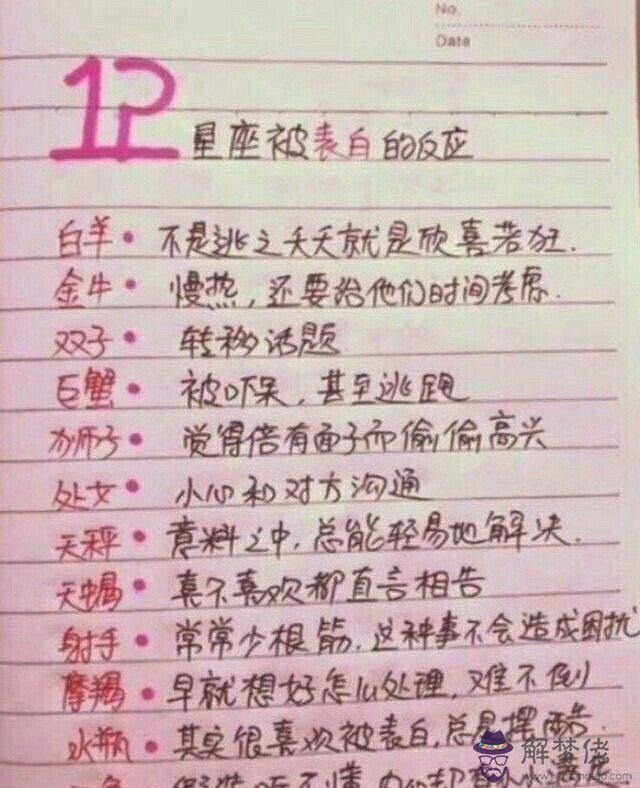 No.
Date
12星座被表白的反应
白羊• 不是逃之夭夭就是欣喜若狂.
金牛• 慢热,还要给他们时间考虑.
双子• 转移话题
巨蟹• 被吓呆,甚至逃跑
狮子• 觉得倍有面子而偷偷高兴
处女• 小心和对方沟通
天秤• 意料之中,总能轻易地解决.
天蝎• 喜不喜欢都直言相告
射手• 常常少根筋,这种事不会造成困扰
摩羯• 早就想好怎么处理,难不倒
水瓶• 其实很喜欢被表白,总是摆酷.
鱼• 假装听不懂,内心却有小小满足
解梦佬